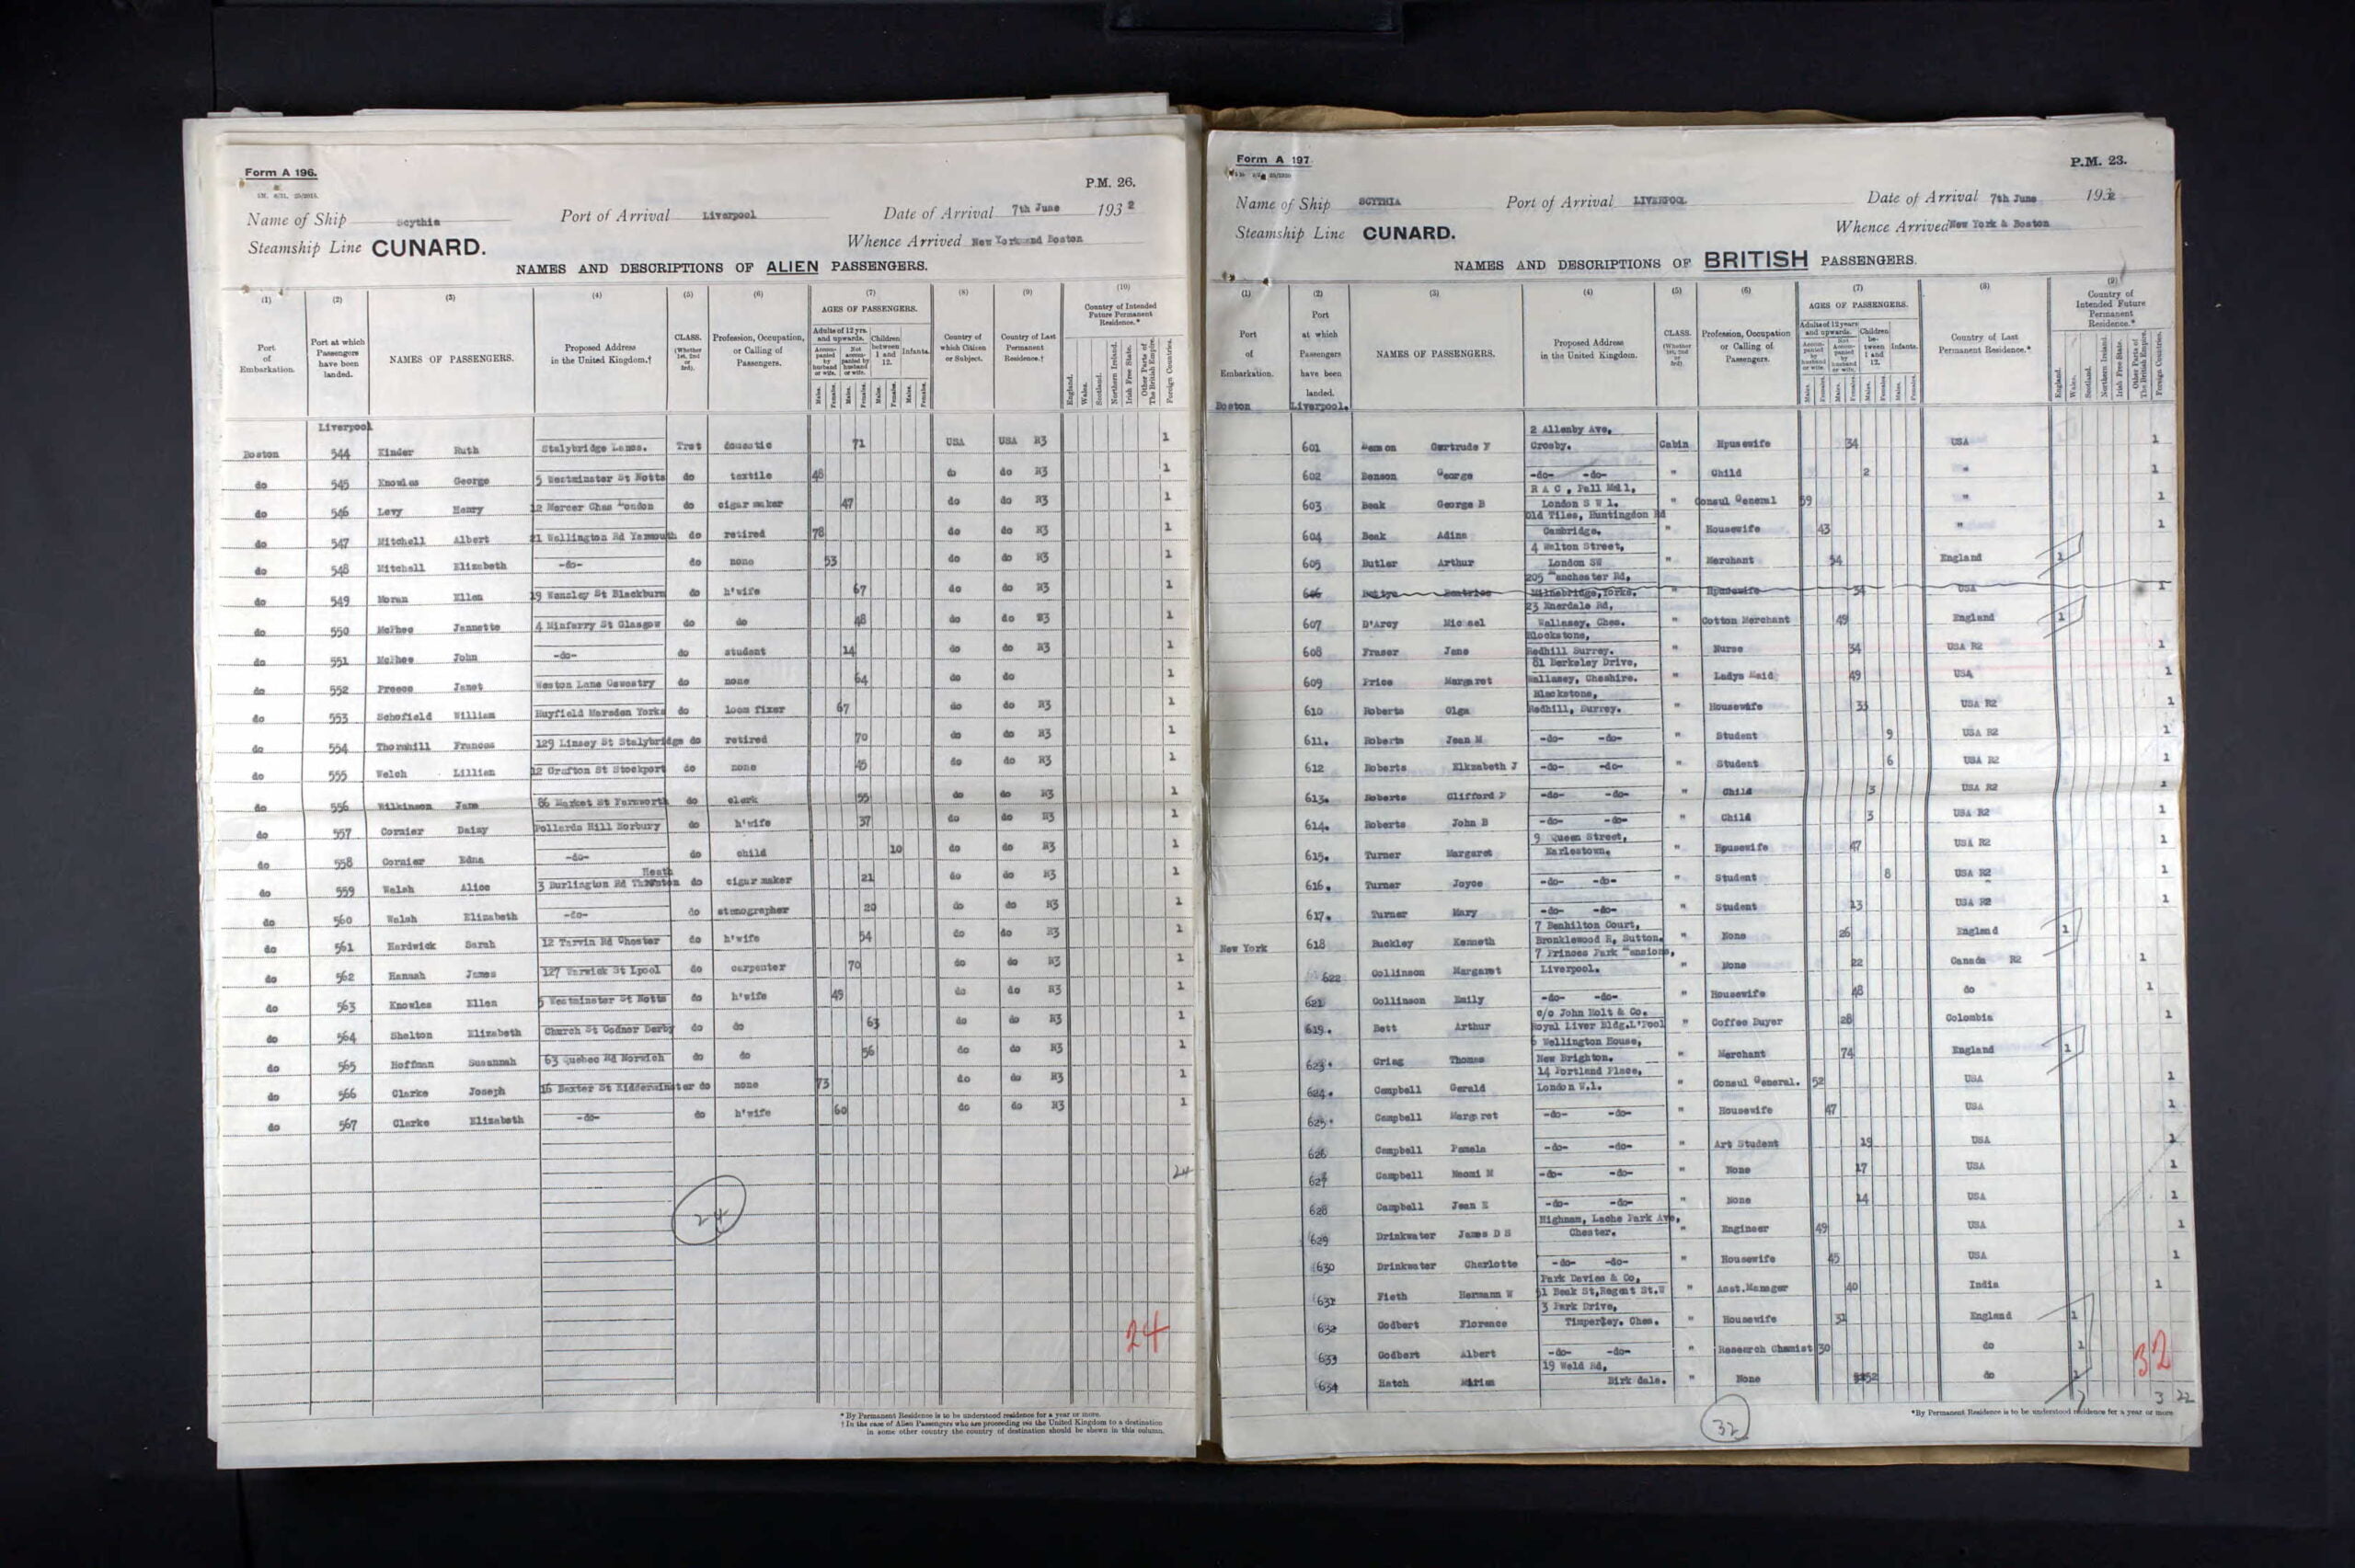 Form A 196.
P.M. 26.
Name of Ship Scythia Port of Arrival Liverpool Date of Arrival 7th June 1932
Steamship Line CUNARD. Whence Arrived New York and Boston
NAMES AND DESCRIPTIONS OF ALIEN PASSENGERS.
(1) (2) (3) (4) (5) (6) (7) (8) (9) (10)
Port of Embarkation.
Port at which Passengers have been landed.
NAMES OF PASSENGERS.
Proposed Address in the United Kingdom.†
CLASS. (Whether 1st, 2nd or 3rd).
Profession, Occupation, or Calling of Passengers.
AGES OF PASSENGERS.
Adults of 12 yrs. and upwards.
Accompanied by husband or wife.
Not accompanied by husband or wife.
Children between 1 and 12.
Infants.
Males. Females. Males. Females. Males. Females. Males. Females.
Country of which Citizen or Subject.
Country of Last Permanent Residence.†
Country of Intended Future Permanent Residence.*
England. Wales. Scotland. Northern Ireland. Irish Free State. Other Parts of The British Empire. Foreign Countries.
Liverpool
Boston 544 Kinder Ruth Stalybridge Lancs. Trst domestic 71 USA USA R3 1
do 545 Knowles George 5 Westminster St Notts do textile 48 do do R3 1
do 546 Levy Henry 12 Mercer Chas London do cigar maker 47 do do R3 1
do 547 Mitchell Albert 21 Wellington Rd Yarmouth do retired 78 do do R3 1
do 548 Mitchell Elizabeth -do- do none 53 do do R3 1
do 549 Moran Ellen 19 Wensley St Blackburn do h'wife 67 do do R3 1
do 550 McPhee Jannette 4 Minfarry St Glasgow do do 48 do do R3 1
do 551 McPhee John -do- do student 14 do do R3 1
do 552 Preece Janet Weston Lane Oswestry do none 64 do do 1
do 553 Schofield William Hayfield Marsden Yorks do loom fixer 67 do do R3 1
do 554 Thornhill Frances 129 Linsey St Stalybridge do retired 70 do do R3 1
do 555 Welch Lillian 12 Grafton St Stockport do none 45 do do R3 1
do 556 Wilkinson Jane 86 Market St Farnworth do clerk 55 do do R3 1
do 557 Cornier Daisy Pollards Hill Norbury do h'wife 37 do do R3 1
do 558 Cornier Edna -do- do child 10 do do R3 1
Heath
do 559 Walsh Alice 3 Burlington Rd Thornton do cigar maker 21 do do R3 1
do 560 Walsh Elizabeth -do- do stenographer 20 do do R3 1
do 561 Hardwick Sarah 12 Tarvin Rd Chester do h'wife 54 do do R3 1
do 562 Hannah James 127 Warwick St Lpool do carpenter 70 do do R3 1
do 563 Knowles Ellen 5 Westminster St Notts do h'wife 49 do do R3 1
do 564 Shelton Elizabeth Church St Codnor Derby do do 63 do do R3 1
do 565 Hoffman Susannah 63 Quebec Rd Norwich do do 56 do do R3 1
do 566 Clarke Joseph 16 Baxter St Kidderminster do none 73 do do R3 1
do 567 Clarke Elizabeth -do- do h'wife 60 do do R3 1
24
24
24
* By Permanent Residence is to be understood residence for a year or more.
† In the case of Alien Passengers who are proceeding via the United Kingdom to a destination
in some other country the country of destination should be shewn in this column.
Form A 197
P.M. 23.
Name of Ship SCYTHIA Port of Arrival LIVERPOOL Date of Arrival 7th June 1932
Steamship Line CUNARD. Whence Arrived New York & Boston
NAMES AND DESCRIPTIONS OF BRITISH PASSENGERS.
(1) (2) (3) (4) (5) (6) (7) (8) (9)
Port of Embarkation.
Port at which Passengers have been landed.
NAMES OF PASSENGERS.
Proposed Address in the United Kingdom.
CLASS. (Whether 1st, 2nd or 3rd)
Profession, Occupation or Calling of Passengers.
AGES OF PASSENGERS.
Adults of 12 years and upwards.
Accompanied by husband or wife.
Not Accompanied by husband or wife.
Children between 1 and 12.
Infants.
Males. Females. Males. Females. Males. Females. Males. Females.
Country of Last Permanent Residence.*
Country of Intended Future Permanent Residence.*
England. Wales. Scotland. Northern Ireland. Irish Free State. Other Parts of The British Empire. Foreign Countries.
Boston Liverpool.
2 Allenby Ave,
601 Benson Gertrude F Crosby. Cabin Housewife 34 USA 1
602 Benson George -do- -do- " Child 2 " 1
R A C, Pall Mall,
603 Beak George B London S W 1. " Consul General 59 " 1
Old Tiles, Huntingdon Rd
604 Beak Adina Cambridge. " Housewife 43 " 1
4 Walton Street,
605 Butler Arthur London SW " Merchant 54 England 1
205 Manchester Rd,
606 Beatrice Milnsbridge, Yorks. " Housewife 34 USA 1
23 Enerdale Rd,
607 D'Arcy Micael Wallasey. Ches. " Cotton Merchant 49 England 1
Blockstone,
608 Fraser Jane Redhill Surrey. " Nurse 34 USA R2 1
81 Berkeley Drive,
609 Price Margaret Wallasey, Cheshire. " Ladys Maid 49 USA 1
Blackstone,
610 Roberts Olga Redhill, Surrey. " Housewife 33 USA R2 1
611. Roberts Jean M -do- -do- " Student 9 USA R2 1
612 Roberts Elkzabeth J -do- -do- " Student 6 USA R2 1
613. Roberts Clifford P -do- -do- " Child 3 USA R2 1
614. Roberts John B -do- -do- " Child 3 USA R2 1
9 Queen Street,
615. Turner Margaret Earlestown. " Housewife 47 USA R2 1
616. Turner Joyce -do- -do- " Student 8 USA R2 1
617. Turner Mary -do- -do- " Student 13 USA R2 1
7 Benhilton Court,
New York 618 Buckley Kenneth Bronklewood R, Sutton. " None 26 England 1
7 Princes Park Mansions,
622 Collinson Margaret Liverpool. " None 22 Canada R2 1
621 Collinson Emily -do- -do- " Housewife 48 do 1
c/o John Holt & Co.
619. Bett Arthur Royal Liver Bldg.L'Pool " Coffee Buyer 28 Colombia 1
6 Wellington House,
623. Grieg Thomas New Brighton. " Merchant 74 England 1
14 Portland Place,
624. Campbell Gerald London W.1. " Consul General. 52 USA 1
625. Campbell Margaret -do- -do- " Housewife 47 USA 1
626 Campbell Pamela -do- -do- " Art Student 19 USA 1
627 Campbell Naomi M -do- -do- " None 17 USA 1
628 Campbell Jean E -do- -do- " None 14 USA 1
Highnam, Lache Park Ave,
629 Drinkwater James D S Chester. " Engineer 49 USA 1
630 Drinkwater Charlotte -do- -do- " Housewife 45 USA 1
Park Davies & Co,
631 Fieth Hermann W 51 Beak St, Regent St.W " Asst.Manager 40 India 1
3 Park Drive,
632 Godbert Florence Timperley. Ches. " Housewife 31 England 1
633 Godbert Albert -do- -do- " Research Chemist 30 do 1
19 Weld Rd,
634 Hatch Miriam Birkdale. " None 52 do 1
32
7 3 22
32
*By Permanent Residence is to be understood residence for a year or more